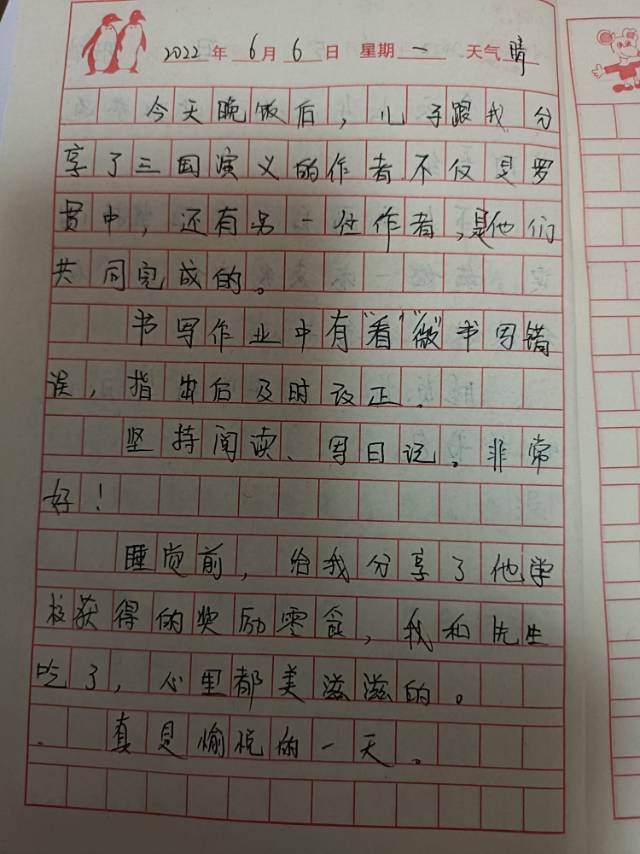 2022年 6月 6日 星期一 天气晴
今天晚饭后，儿子跟我分
享了三国演义的作者不仅是罗
贯中，还有另一位作者，是他们
共同完成的。
书写作业中有"看""微"书写错
误，指出后及时改正。
坚持阅读、写日记。非常
好！
睡觉前，给我分享了他学
校获得的奖励零食，我和先生
吃了，心里都美滋滋的。
真是愉悦的一天。